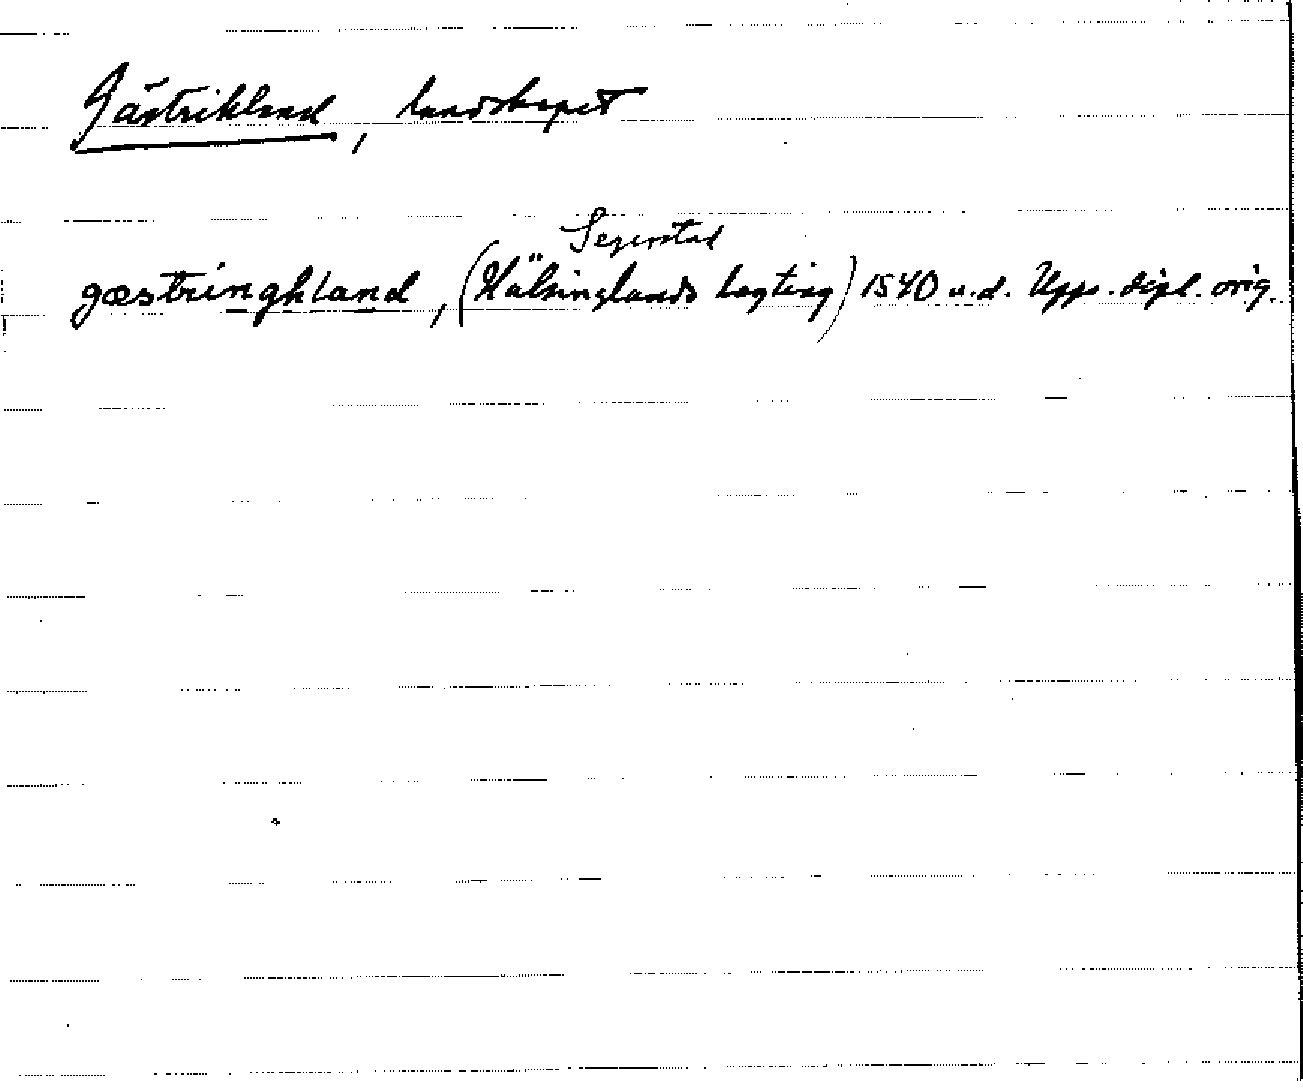 Gästrikland, landskapet
Segerstad
gæstringhland, (Hälsinglands lagting) 1540 u.d. Upps. dipl. orig.